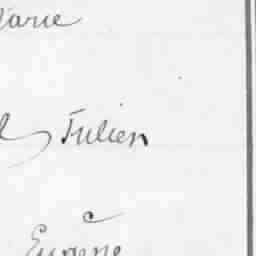 Marie
Julien
Eugène